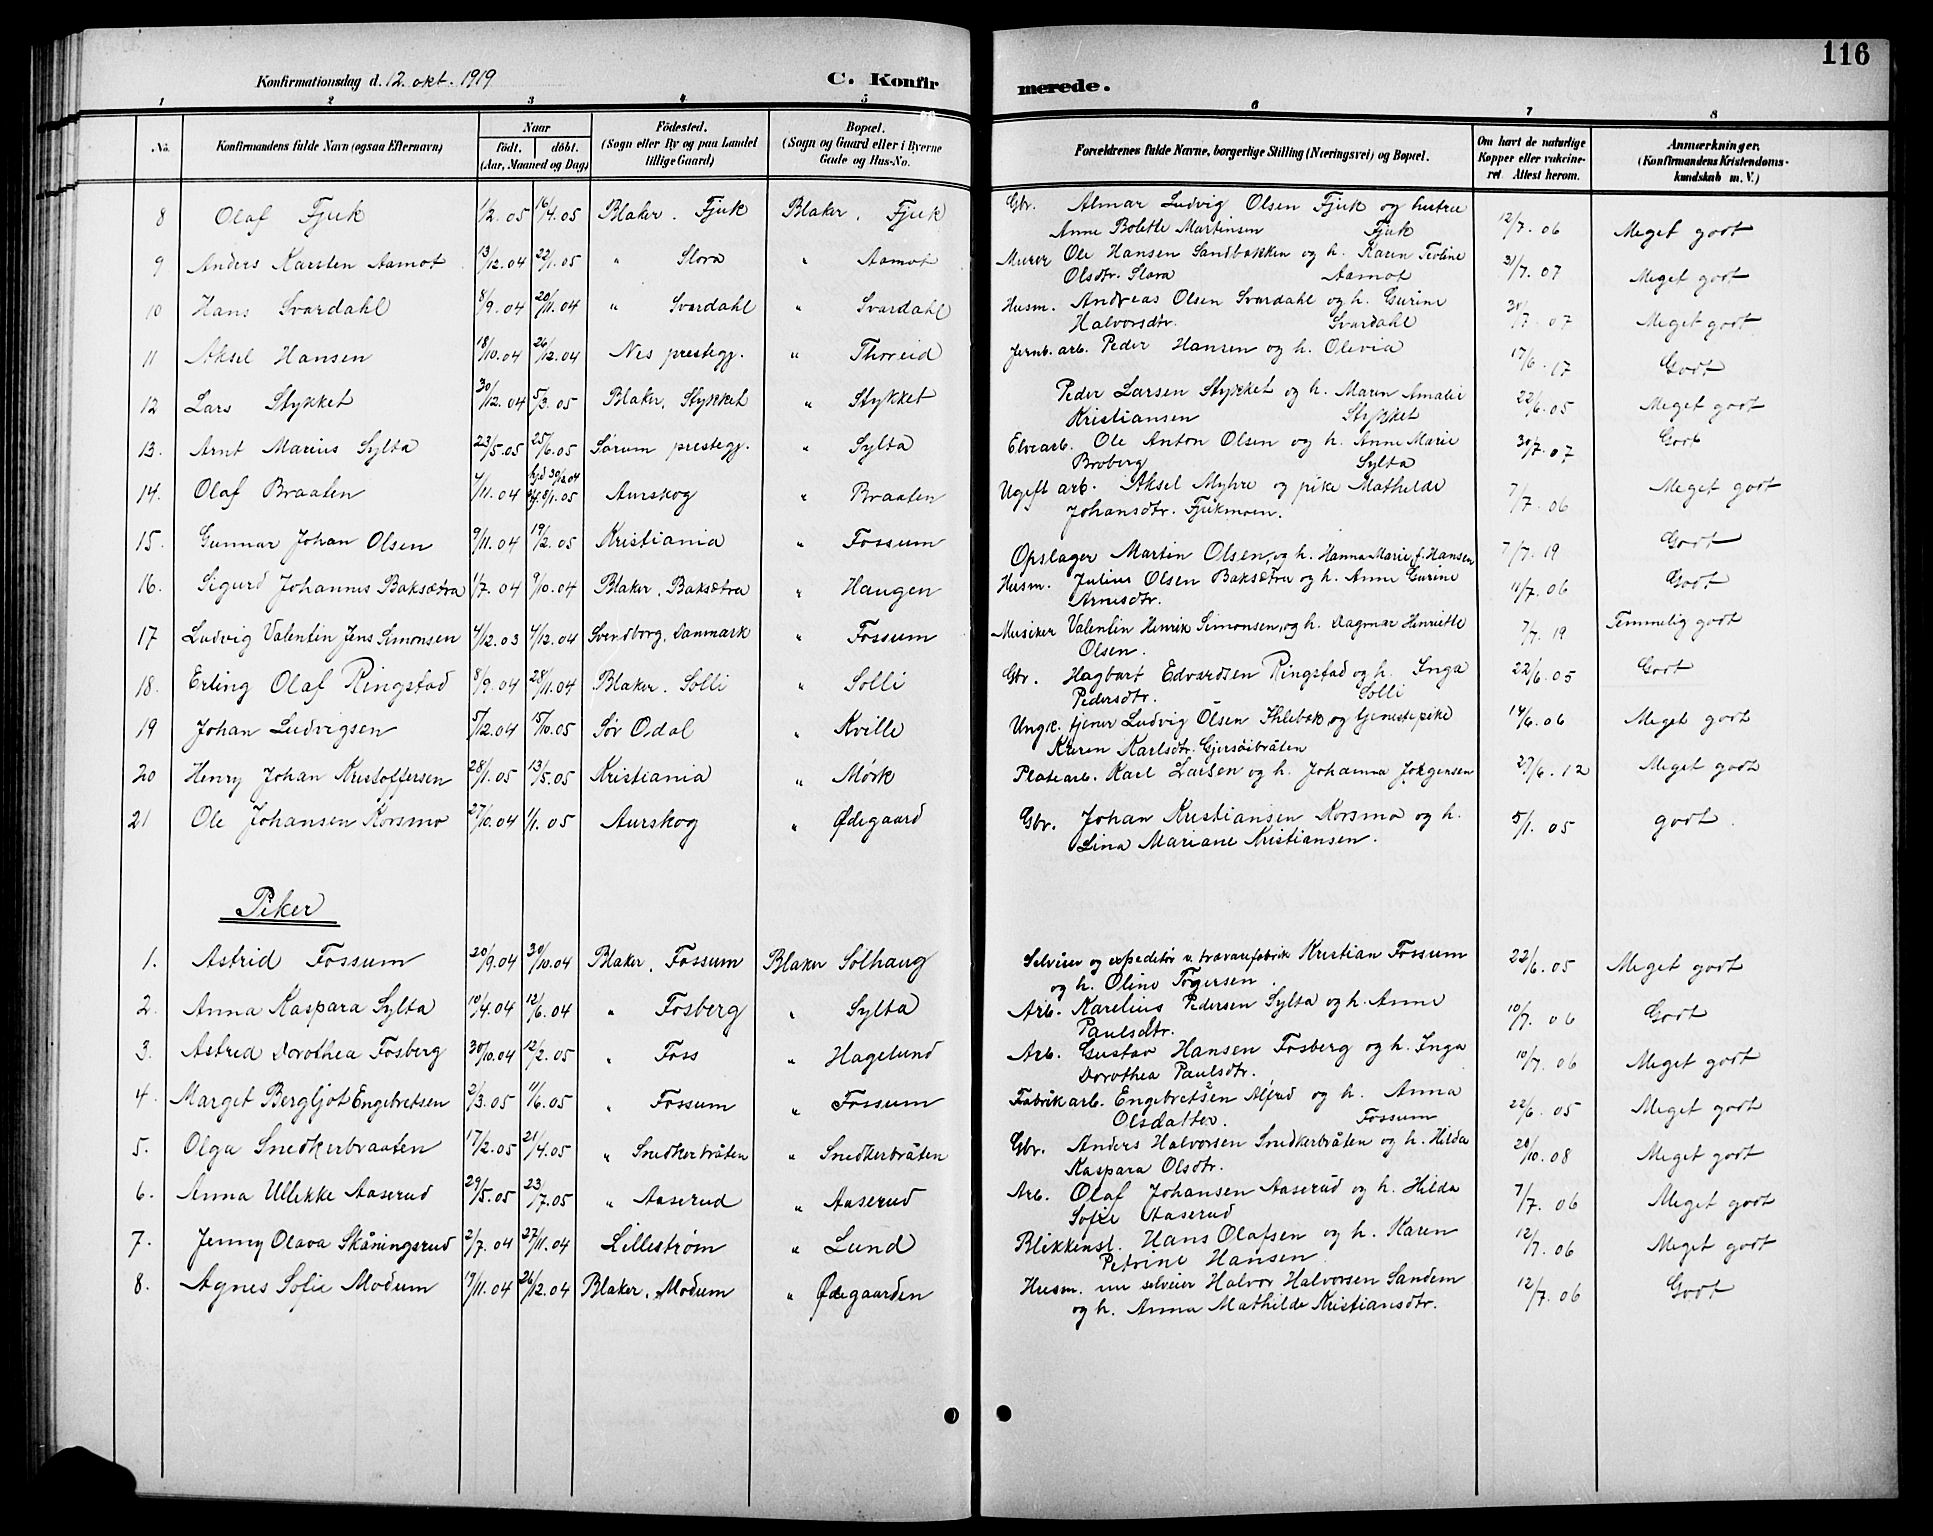 116
Konfirmationsdag d. 12. okt. 1919
C. Konfirmerede.
1 2 3 4 5 6 7 8
No. Konfirmandens fulde Navn (ogsaa Efternavn) Naar født. døbt. (Aar, Maaned og Dag) Födested. (Sogn eller By og paa Landet tillige Gaard) Bopæl. (Sogn og Gaard eller i Byerne Gade og Hus-No. Forældrenes fulde Navne, borgerlige Stilling (Næringsvei) og Bopæl. Om havt de naturlige Kopper eller vakcineret Attest herom. Anmærkninger. (Konfirmandens Kristendomskundskab m. V.)
8 Olaf Fjuk 1/2. 05 16/4. 05 Blaker. Fjuk Blaker. Fjuk Gbr. Almar Ludvig Olsen Fjuk og hustru 12/7. 06 Meget godt
Anne Bolette Martinsen Fjuk
9 Anders Karsten Aamot 13/12. 04 22/1. 05 " Slora " Aamot Murer Ole Hansen Sandbakken og h. Karen Teoline 31/7. 07 Meget godt
Olsdtr. Slora Aamot
10 Hans Svardahl 8/9. 04 20/11. 04 " Svardahl " Svardahl Husm. Andreas Olsen Svardahl og h. Gurine 30/7. 07 Meget godt
Halvorsdtr. Svardahl
11 Aksel Hansen 18/10. 04 26/12. 04 Nes prestegj. " Thoreid Jernb. arb. Peder Hansen og h. Olevia 17/6. 17 Godt
12 Lars Stykket 30/12. 04 5/3. 05 Blaker, Stykket " Stykket Peder Larsen Stykket og h. Maren Amalie 22/6. 05 Meget godt
Kristiansen Stykket
13. Arnt Marius Sylta 23/5. 05 25/6. 05 Sørum prestegj. " Sylta Elvearb. Ole Anton Olsen og h. Anne Marie 30/7. 07 Godt
Broberg Sylta
14. Olaf Braaten 4/11. 04 hjd 30/12 04 8/1. 05 Aurskog " Braaten Ugift arb. Aksel Myhre og pike Mathilde 7/7. 06 Meget godt
Johansdtr. Fjukmoen.
15. Gunnar Johan Olsen 9/11. 04 19/2. 05 Kristiania " Fossum Opslager Martin Olsen, og h. Hanna Marie f. Hansen 7/7. 19 Godt
16. Sigurd Johannes Baksætra 1/7. 04 9/10. 04 Blaker, Baksætra " Haugen Husm. Julius Olsen Baksætra og h. Anne Gurine 11/7. 06 Godt
Arnesdtr.
17 Ludvig Valentin Jens Simonsen 4/12. 03 4/12. 04 Svendborg, Danmark " Fossum Musiker Valentin Henrik Simonsen, og h. Dagmar Henriette 7/7. 19 Temmelig godt
Olsen.
18. Erling Olaf Ringstad 8/9. 04 28/11. 04 Blaker. Solli " Solli Gbr. Hagbart Edvardsen Ringstad og h. Inga 22/6. 05 Godt
Pedersdtr. Solli
19 Johan Ludvigsen 5/12. 04 15/10. 05 Sør Odal " Kville Ungk. tjener Ludvig Olsen Ihlebæk og tjenestepike 14/6. 06 Meget godt
Karen Karlsdtr. Gjersøibråten
20 Henry Johan Kristoffersen 28/1. 05 13/5. 05 Kristiania " Mørk Platearb. Karl Larsen og h. Johanna Jørgensen 27/6. 12 Meget godt
21 Ole Johansen Korsmo 27/10. 04 1/1. 05 Aurskog " Ødegaard Gbr. Johan Kristiansen Korsmo og h. 5/1. 05 godt.
Lina Mariane Kristiansen.
Piker
1. Astrid Fossum 20/9. 04 30/10. 04 Blaker, Fossum Blaker Solhaug Selveier og expeditør v. trævarefabrik Kristian Fossum 22/6. 05 Meget godt
og h. Oline Torgersen.
2. Anna Kaspara Sylta 10/4. 04 12/6. 04 " Fosberg " Sylta Arb. Karelius Pedersen Sylta og h. Anne 10/7. 06 Godt
Paulsdtr.
3. Astrid Dorothea Fosberg 30/10. 04 12/2. 05 " Foss " Hagelund Arb. Gustav Hansen Fosberg og h. Inga 10/7. 06 Meget godt
Dorothea Paulsdtr.
4. Marget Bergljot Engebretsen 2/3. 05 11/6. 05 " Fossum " Fossum Fabrikarb. Engebretsen Alfred og h. Anna 22/6. 05 Meget godt
Olsdatter. Fossum
5. Olga Snedkerbraaten 17/2. 05 21/4. 05 " Snedkerbråten " Snedkerbråten Gbr. Anders Halvorsen Snedkerbråten og h. Hilda 20/10. 08 Meget godt
Kaspara Olsdtr.
6. Anna Ullikke Aaserud 29/5. 05 23/7. 05 " Aaserud " Aaserud Arb. Olaf Johansen Aaserud og h. Hilda 7/7. 06 Meget godt
Sofie Aaserud
7. Jenny Olava Skåningsrud 2/7. 04 27/11. 04 Lillestrøm " Lund Blikkensl. Hans Olafsen og h. Karen 12/7. 06 Meget godt
Petrine Hansen
8. Agnes Sofie Modum 17/11. 04 26/12. 04 Blaker. Modum " Ødegaarden Husm. nu selveier Halvor Halvorsen Sandem 12/7. 06 Godt
og h. Anna Mathilde Kristiansdtr.